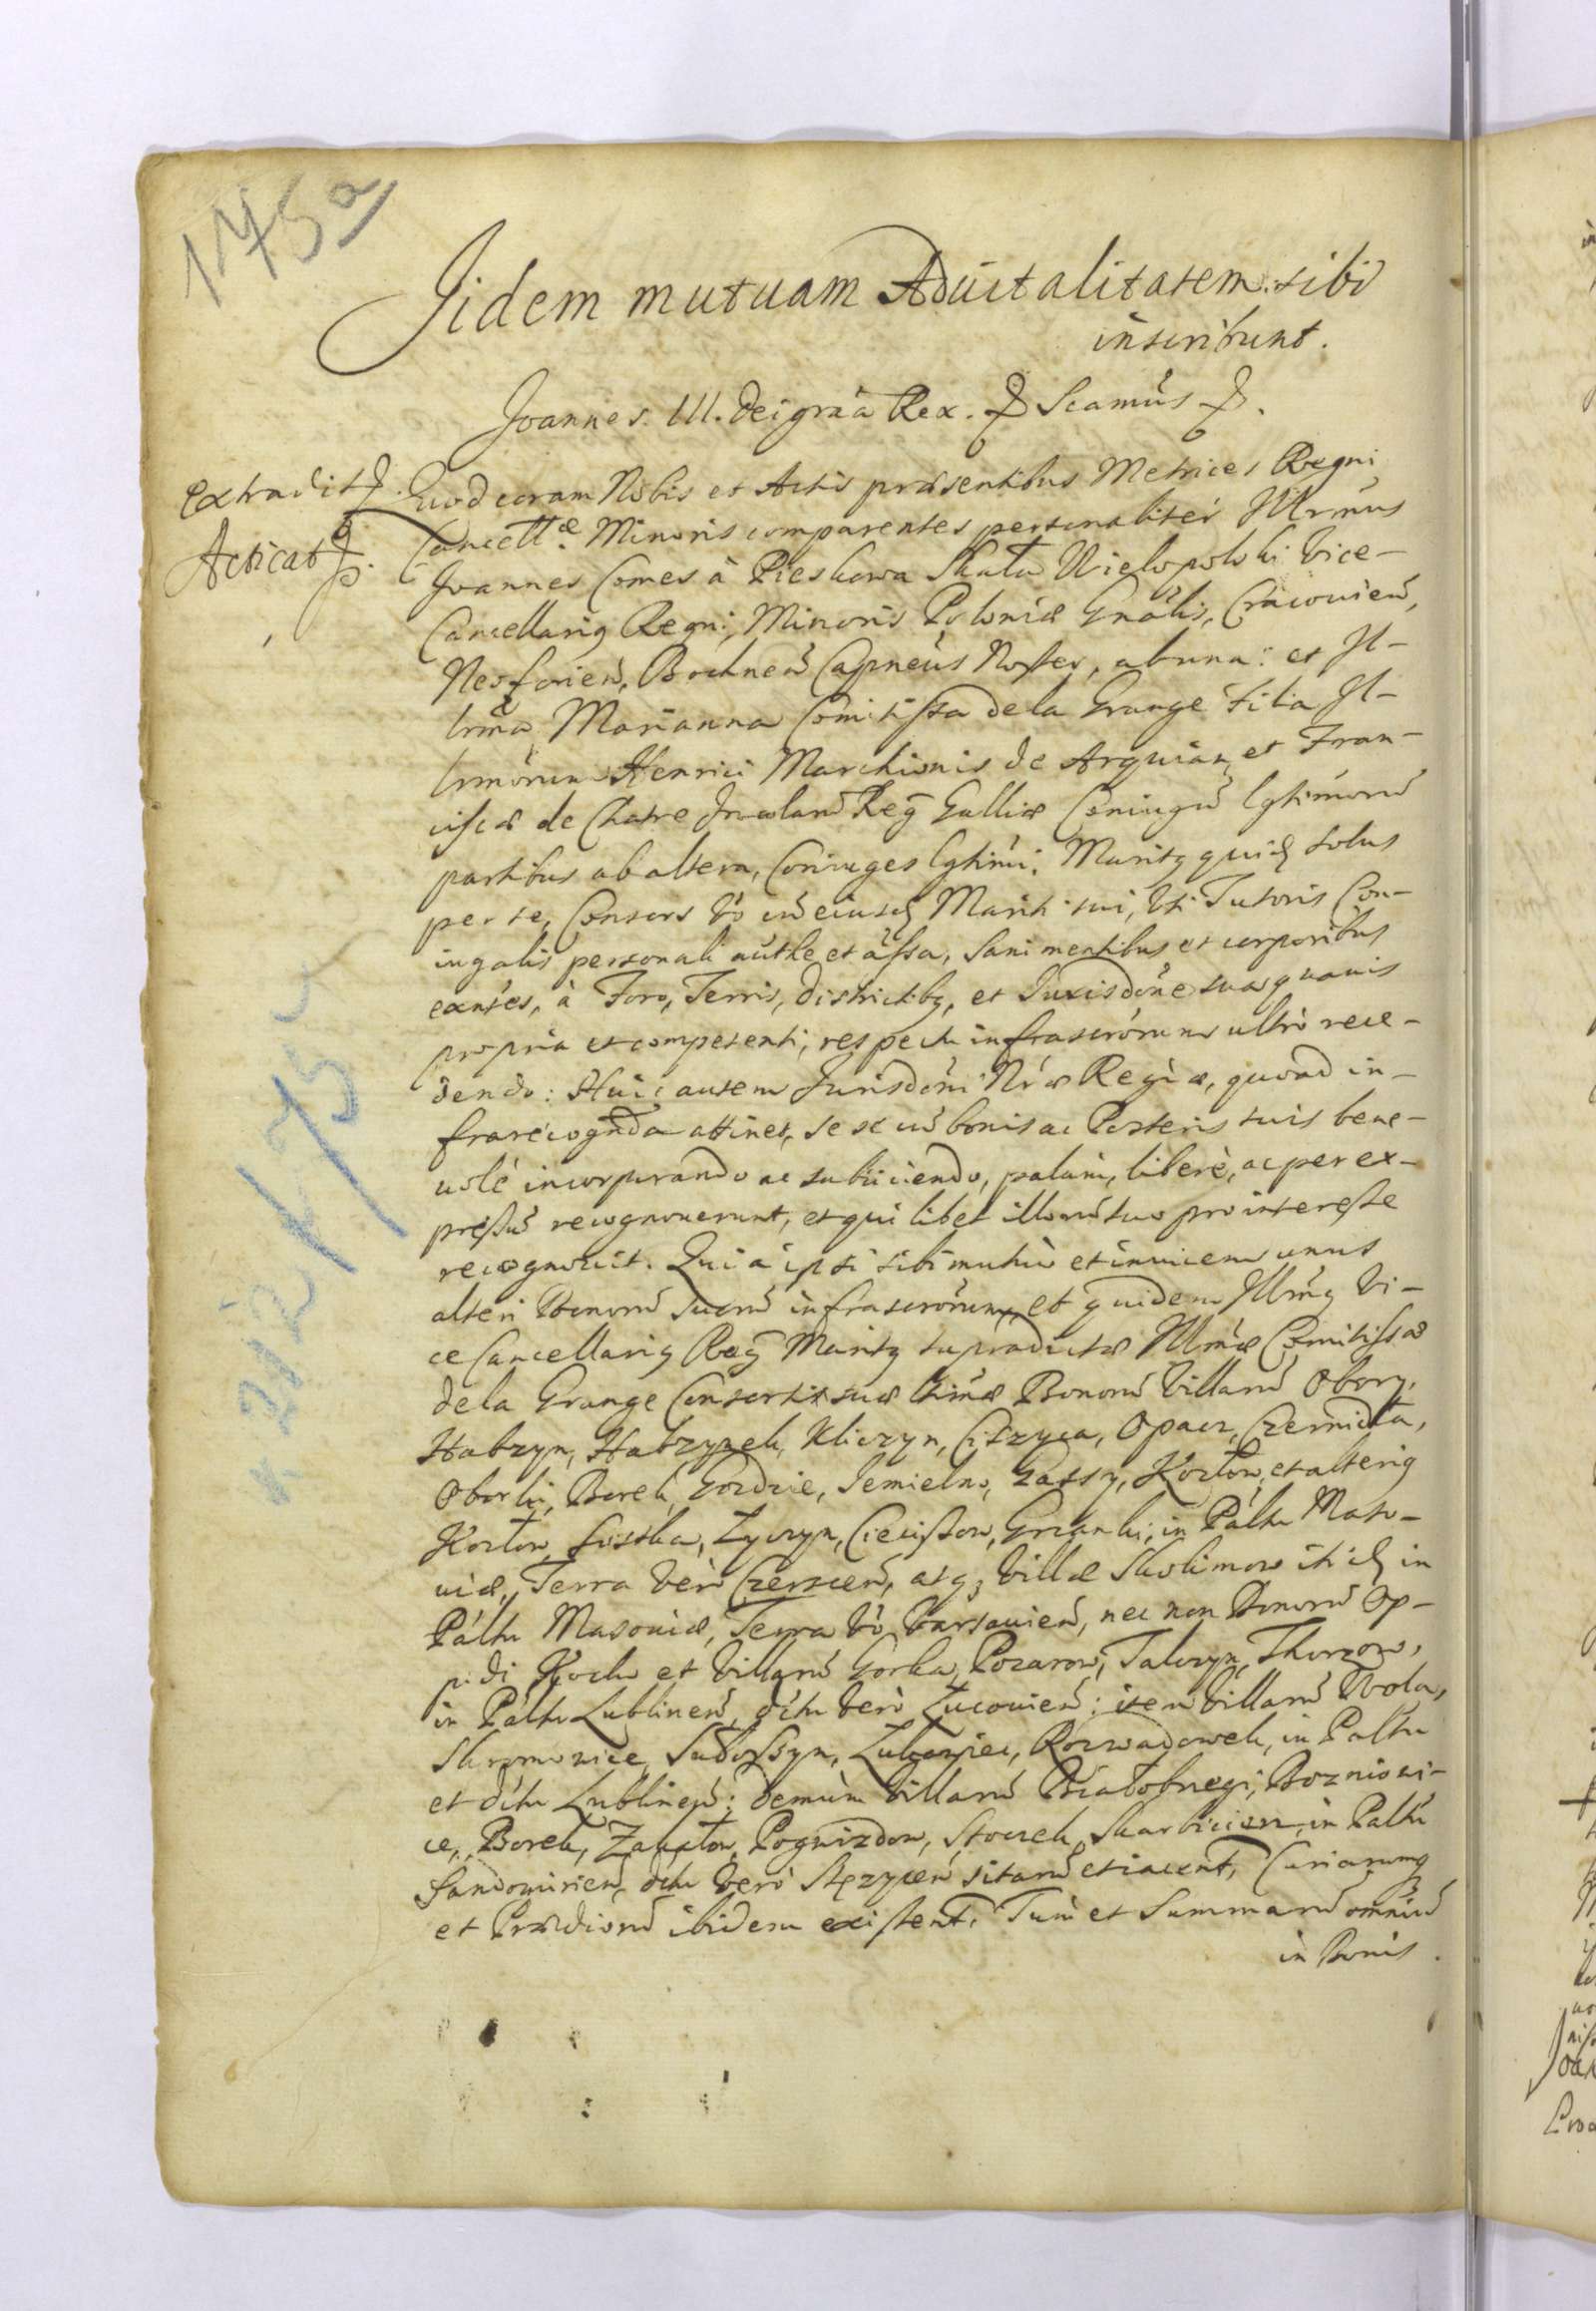 1175a
Jidem mutuam Aduitalitatem sibi
inscribunt.
Joannes. III. Dei graã Rex. & Scamus &.
Extradit.
Acticat.
Quod coram Nobis et Actis præsentibus Metrices Regni,
Cancellæ. Minoris comparentes personaliter Illrmus
Joannes Comes à Pieskowa Skała Wielopolski Vice-
Cancellariq Regni, Minoris Poloniæ Gnalis, Cracouien,
Neoforien, Bochnen Capneus Noster, ab una: et Il-
lrma Marianna Comitissa de la Grange filia Il-
lrmorum Henrici Marchionis de Arquian et Fran-
ciscæ de Chatre Incolarũ Reg Galliæ Coniugũ lgtimorũ
partibus ab altera, Coniuges lgtimi. Maritq quid solus
per se, Consors vo cũ eiusd Mariti sui, vti Tutoris Con-
iugalis personali authe et assa, sani mentibus et corporibus
exntes, à Foro, Terris, Districtibq, et Jurisdone suas quauis
propria et competenti, respectu infrascrorum ultrò rece-
dendo: Huic autem Jurisdoni Nræ Regiæ, quoad in-
frarecognda attinet, se se cũ bonis ac Posteris suis bene-
uolè incorporando ac subiiciendo, palam, liberè, ac per ex-
pressũ recognouerunt, et quilibet illorũ suo pro interesse
recognoscit. Quia ipsi sibi mutuò et inuicem unus
alteri Bonorũ suorũ infrascrorum, et quidem Illmq Vi-
ce Cancellariq Reg Maritq supradictæ Illmæ Comitissæ
de la Grange Consortis suæ lhimæ Bonorũ Villarũ Obory,
Habzyn, Habzynek, Kliczyn, Ciszyca, Opacz, Czernidła,
Oborki, Borek, Gozdzie, Jemielno, Gassy, Kozłow, et alteriq
Kozłow, Sosska, Zyczyn, Cieciszow, Grzanki, in Paltu Maso-
uiæ, Terra verò Czerscen, atq Villæ Skolimow itid in
Paltu Masouiæ, Terra vo Varsauien, nec non Bonorũ Op-
pidi Kock et Villarũ Gorka, Pozarow, Talczyn, Thurzow,
in Paltu Lublinen, dctu verò Lucouien: item Villarũ Wola,
Skromowice, Sudoszyn, Luboniec, Rozwadowek, in Paltu
et dctu Lublinen: demùm Villarũ Białobrzegi, Wozniowi-
ce, Borek, Zakałow, Pogwizdow, Stoczek, Skarbiciesz, in Paltu
Sandomirien, dctu verò Stęzycen sitarũ et iacent, Curiarumq
et Prædiorũ ibidem existent. Tum et Summarũ omniũ
in Bonis.